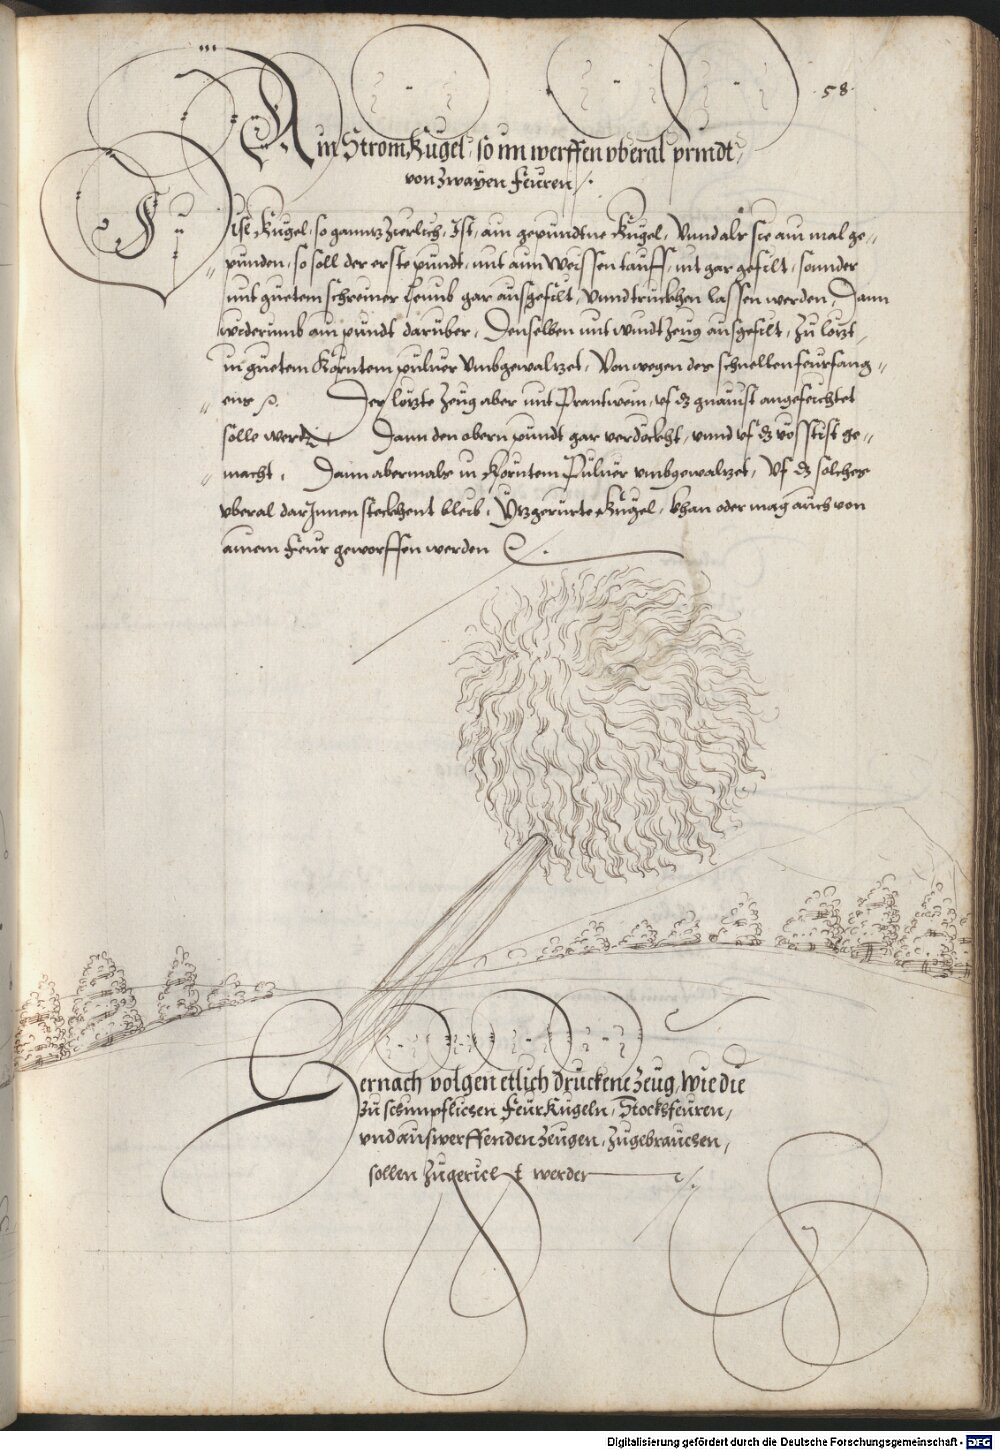 58.
Ain Strom Kugel, so im werffen vberal prindt,
von zwayen feuren /.
Dise Kugel, so ganntz zierlich, Ist, ain gepundtne Kugel, Vnnd alß sie ain mal ge„
„ punden, so soll der erste pundt, mit ainn weissen tauff, nit gar gefilt, sonnder
mit guetem schreiner leimb gar ausgefilt, vnnd truckhen lassen werden, Dann
widerumb ain pundt darüber, Denselben mit windt Zeug ausgefilt, zu lötzt,
in guetem Körntem puluer vmbgewaltzet, Von wegen der schnellen feurfang„
„ ens /. Der lötzte Zeug aber mit Prantwein, vf dz gnauist angefeichtet
solle werden Dann den obern pundt gar verdöckht, vnnd vf dz vösstist ge„
„ macht, Dann abermals in Körntem Puluer vmbgewaltzet, Vf dz solches
vberal darInnen steckhent bleib, Ytzgerürte Kugel, khan oder mag auch von
ainem feur geworffen werden
Hernach volgen etlich druckene Zeug, wie die
zu schimpflichen FeurKugeln, Stockhfeuren,
vnd auswerffenden Zeugen, zugebrauchen,
sollen zugericht werden /.
Digitalisierung gefördert durch die Deutsche Forschungsgemeinschaft - DFG